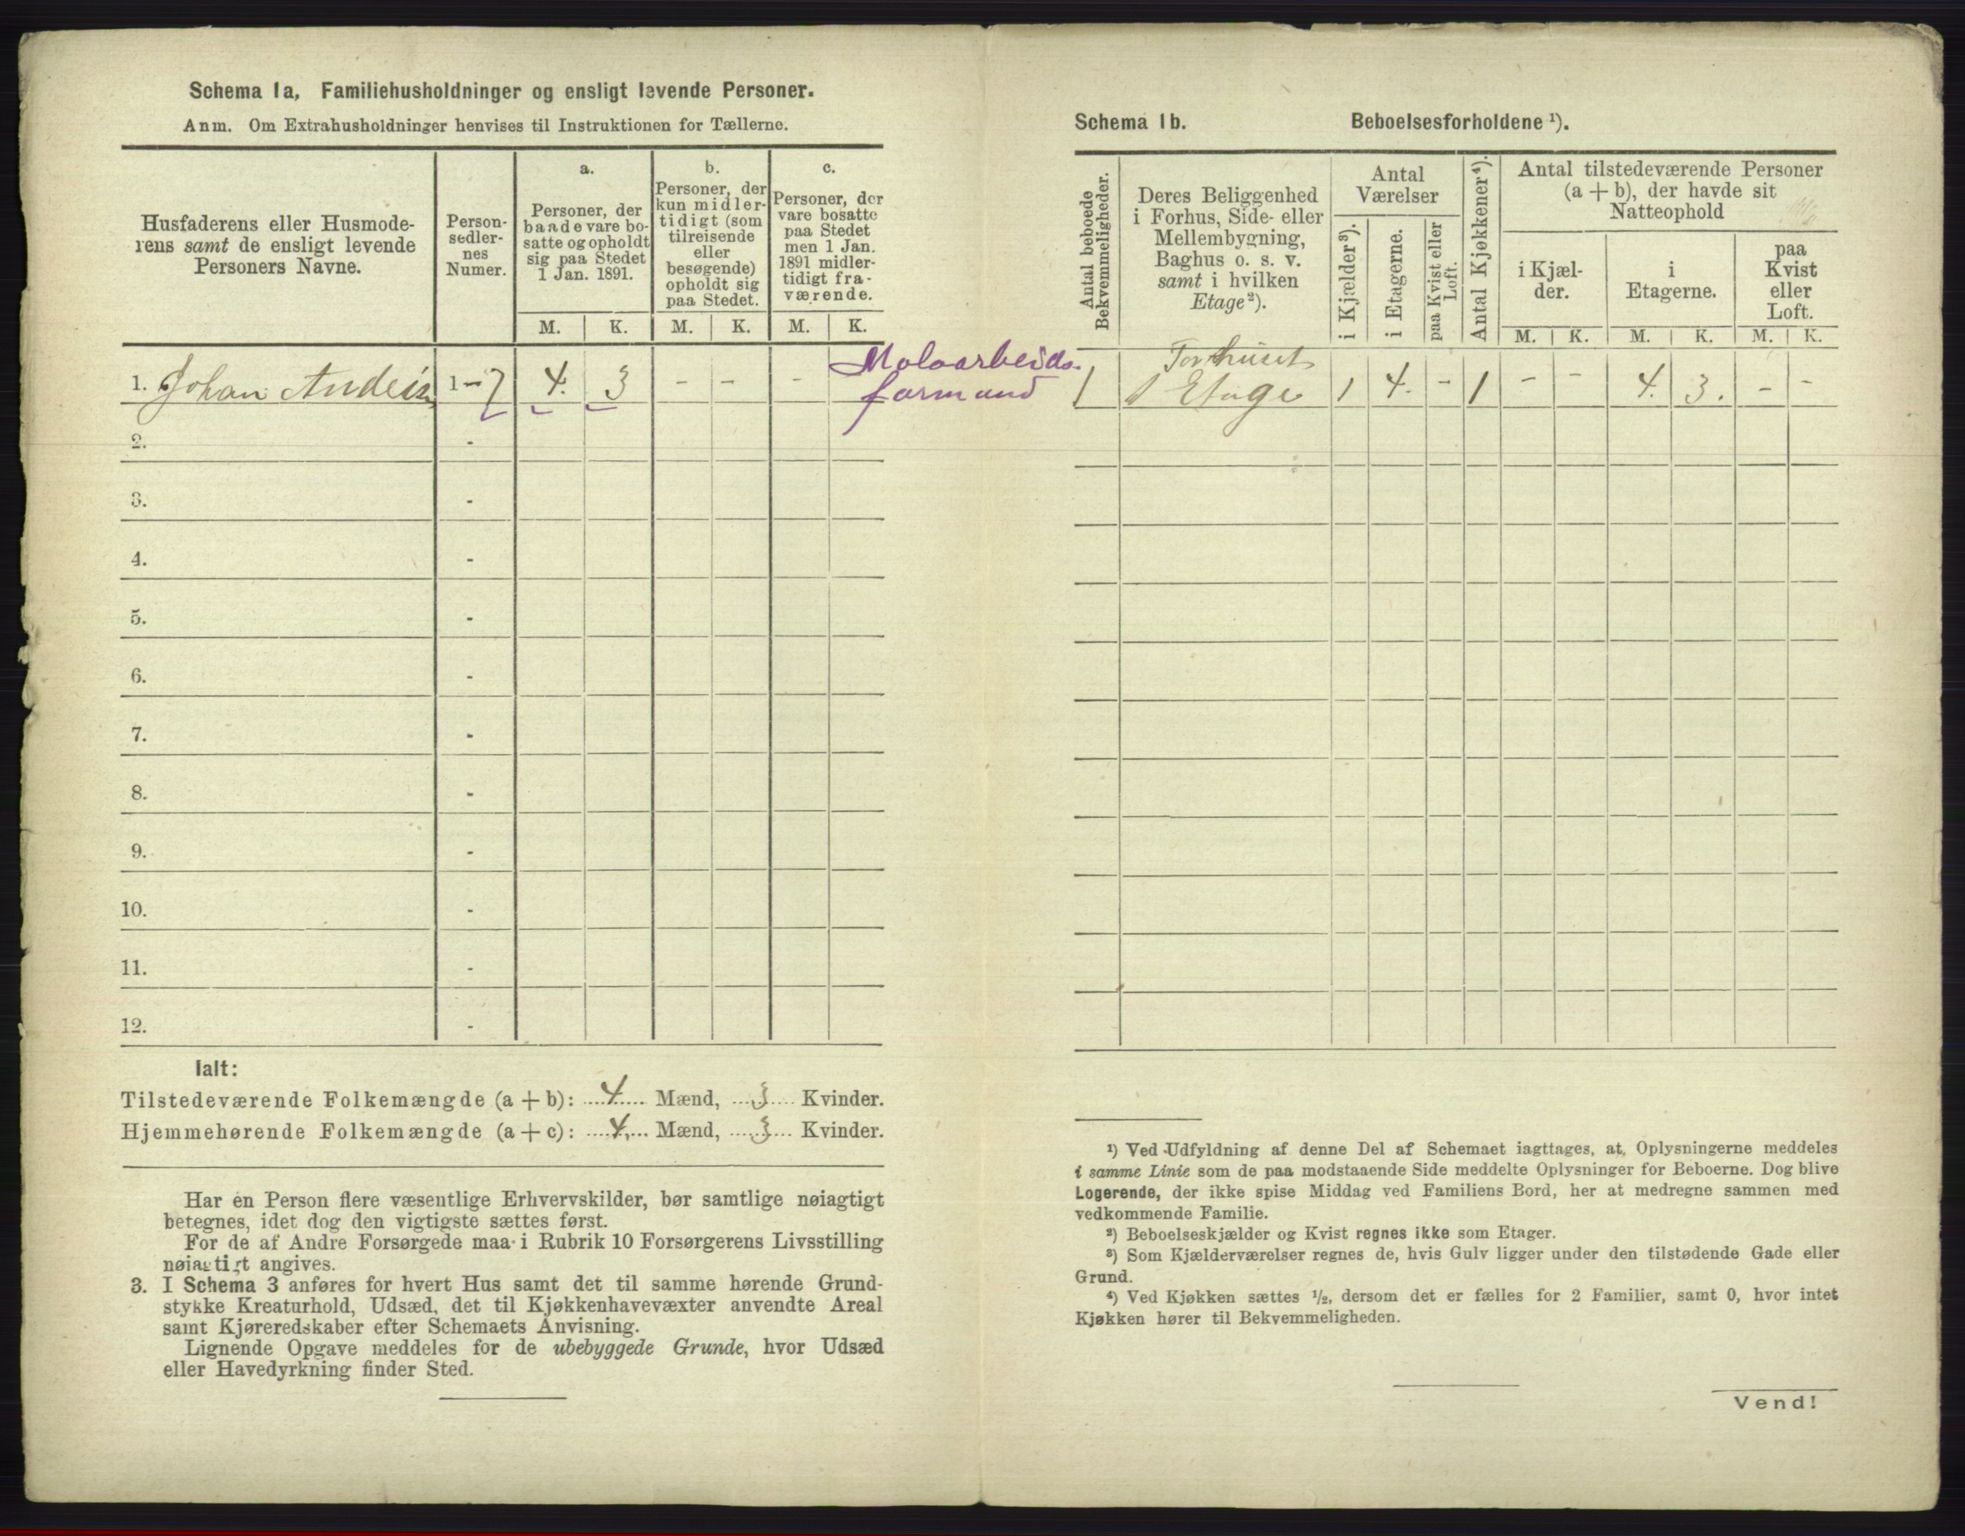 Schema 1a, Familiehusholdninger og ensligt levende Personer.
Anm. Om Extrahusholdninger henvises til Instruktionen for Tællerne.
Husfaderens eller Husmode-
rens samt de ensligt levende
Personers Navne.
Person-
sedler-
nes
Numer.
a.
Personer, der
baade vare bo-
satte og opholdt
sig paa Stedet
1 Jan. 1891.
b.
Personer, der
kun midler-
tidigt (som
tilreisende
eller
besøgende)
opholdt sig
paa Stedet.
c.
Personer, der
vare bosatte
paa Stedet
men 1 Jan.
1891 midler-
tidigt fra-
værende.
M. K. M. K. M. K.
1. Johan 1-7 4. 3 - - -
Moloarbeids-
formand
2. -
3. -
4. -
5. -
6. -
7. -
8. -
9. -
10. -
11. -
12. -
Ialt:
Tilstedeværende Folkemængde (a + b): 4 Mænd, 3 Kvinder.
Hjemmehørende Folkemængde (a + c): 4. Mænd, 3 Kvinder.
Har en Person flere væsentlige Erhvervskilder, bør samtlige nøiagtigt
betegnes, idet dog den vigtigste sættes først.
For de af Andre Forsørgede maa i Rubrik 10 Forsørgerens Livsstilling
nøiagtigt angives.
3. I Schema 3 anføres for hvert Hus samt det til samme hørende Grund-
stykke Kreaturhold, Udsæd, det til Kjøkkenhavevæxter anvendte Areal
samt Kjøreredskaber efter Schemaets Anvisning.
Lignende Opgave meddeles for de ubebyggede Grunde, hvor Udsæd
eller Havedyrkning finder Sted.
Schema 1b. Beboelsesforholdene ¹).
Antal beboede
Bekvemmeligheder.
Deres Beliggenhed
i Forhus, Side- eller
Mellembygning,
Baghus o. s. v.
samt i hvilken
Etage ²).
Antal
Værelser
i Kjælder ³).
i Etagerne.
paa Kvist eller
Loft.
Antal Kjøkkener ⁴).
Antal tilstedeværende Personer
(a + b), der havde sit
Natteophold
i Kjæl-
der.
i
Etagerne.
paa
Kvist
eller
Loft.
M. K. M. K. M. K.
Forhuset
1 1 Etage 1 4. - 1 - - 4. 3. - -
¹) Ved Udfyldning af denne Del af Schemaet iagttages, at Oplysningerne meddeles
i samme Linie som de paa modstaaende Side meddelte Oplysninger for Beboerne. Dog blive
Logerende, der ikke spise Middag ved Familiens Bord, her at medregne sammen med
vedkommende Familie.
²) Beboelseskjælder og Kvist regnes ikke som Etager.
³) Som Kjælderværelser regnes de, hvis Gulv ligger under den tilstødende Gade eller
Grund.
⁴) Ved Kjøkken sættes ½, dersom det er fælles for 2 Familier, samt 0, hvor intet
Kjøkken hører til Bekvemmeligheden.
Vend!